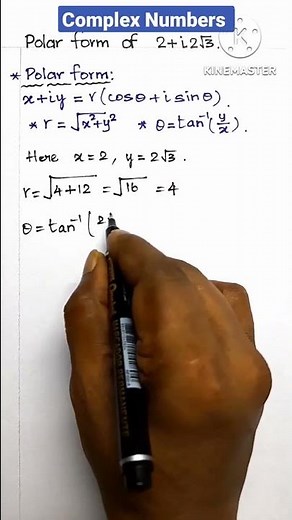 Complex Numbers
Polar form of 2+i2√3.
KINEMASTER
* Polar form:
x+iy = r(cosθ+i sinθ).
* r=√x²+y² * θ=tan⁻¹(y/x).
Here x=2, y=2√3.
r=√4+12 = √16 = 4
θ=tan⁻¹(2